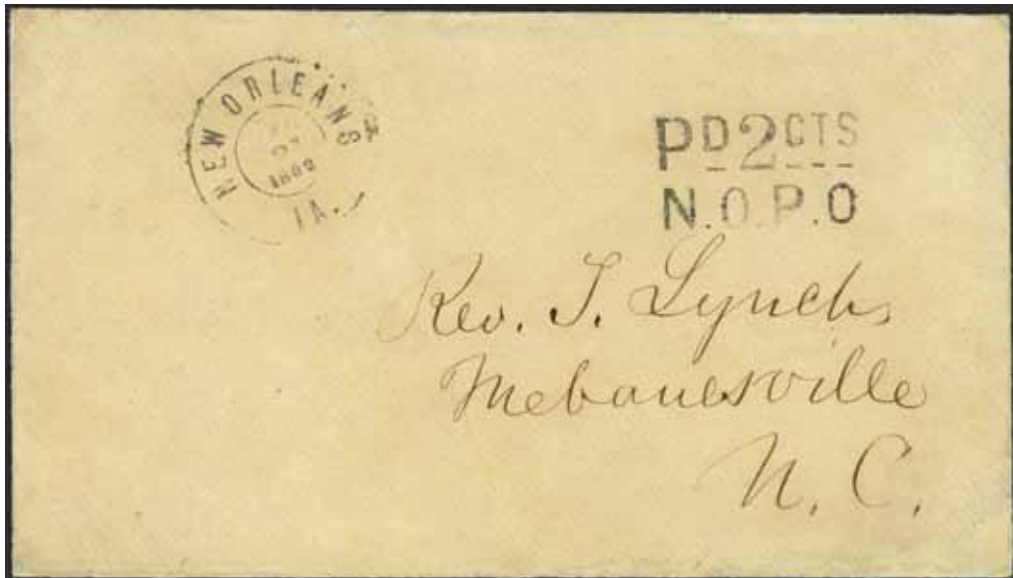 NEW ORLEANS
1862
LA.
PD 2 CTS
N.O.P.O
Rev. T. Lynch,
Mebanesville
N. C.